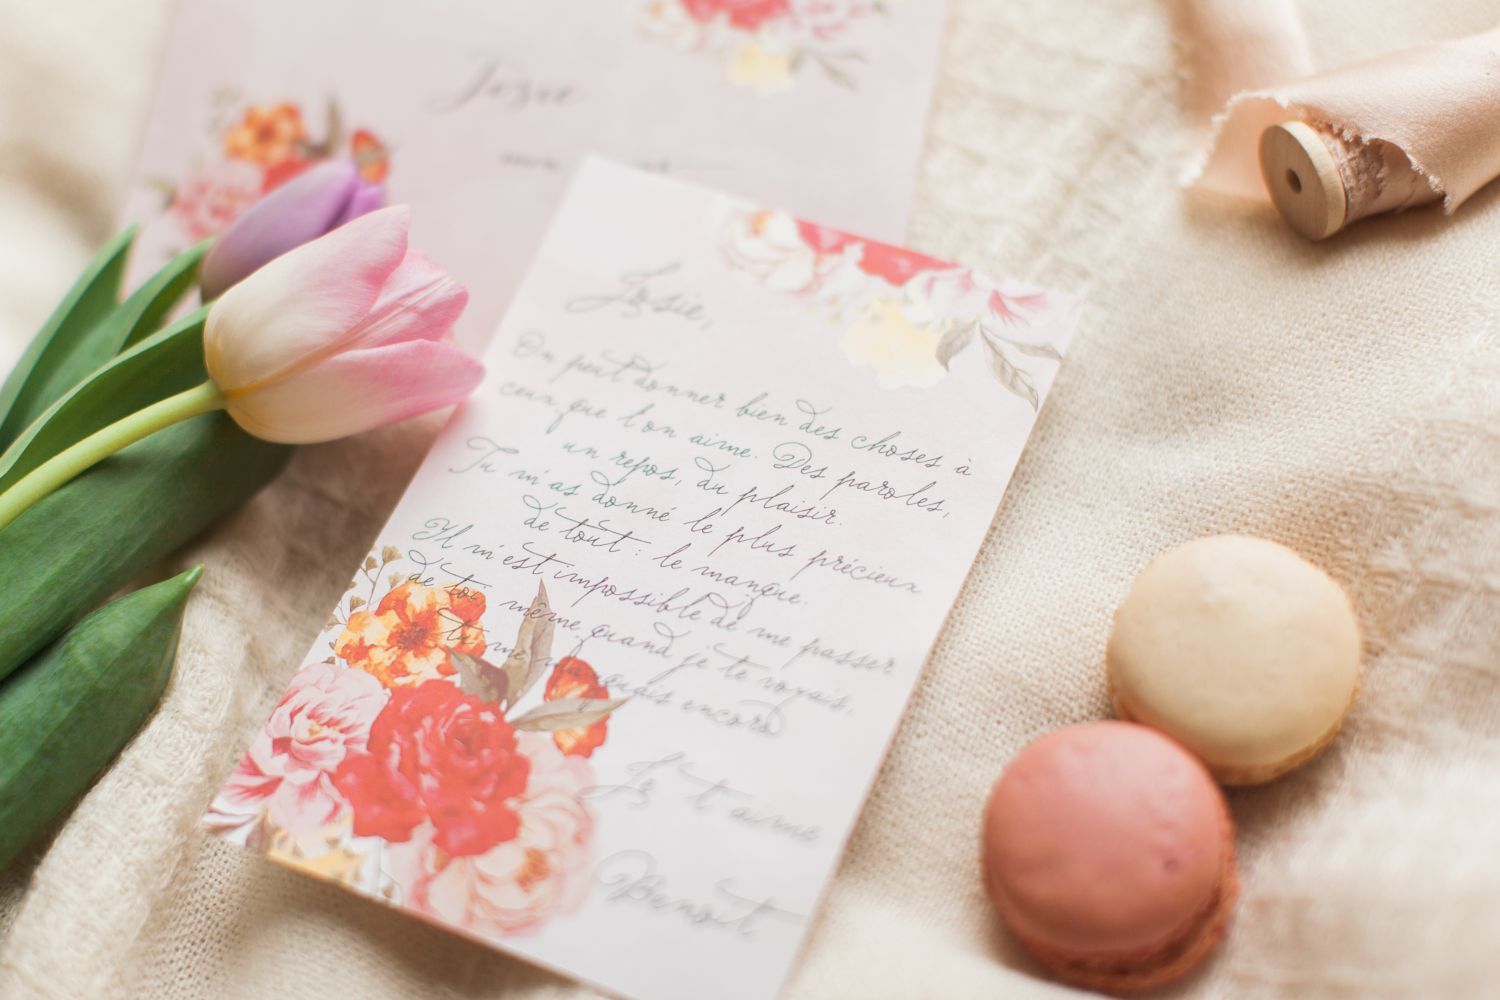 Josie
Josie,
On peut donner bien des choses à
ceux que l'on aime. Des paroles,
un repos, du plaisir.
Tu m'as donné le plus précieux
de tout : le manque.
Il m'est impossible de me passer
de toi, même quand je te voyais,
tu me manquais encore
Je t'aime
Benoit